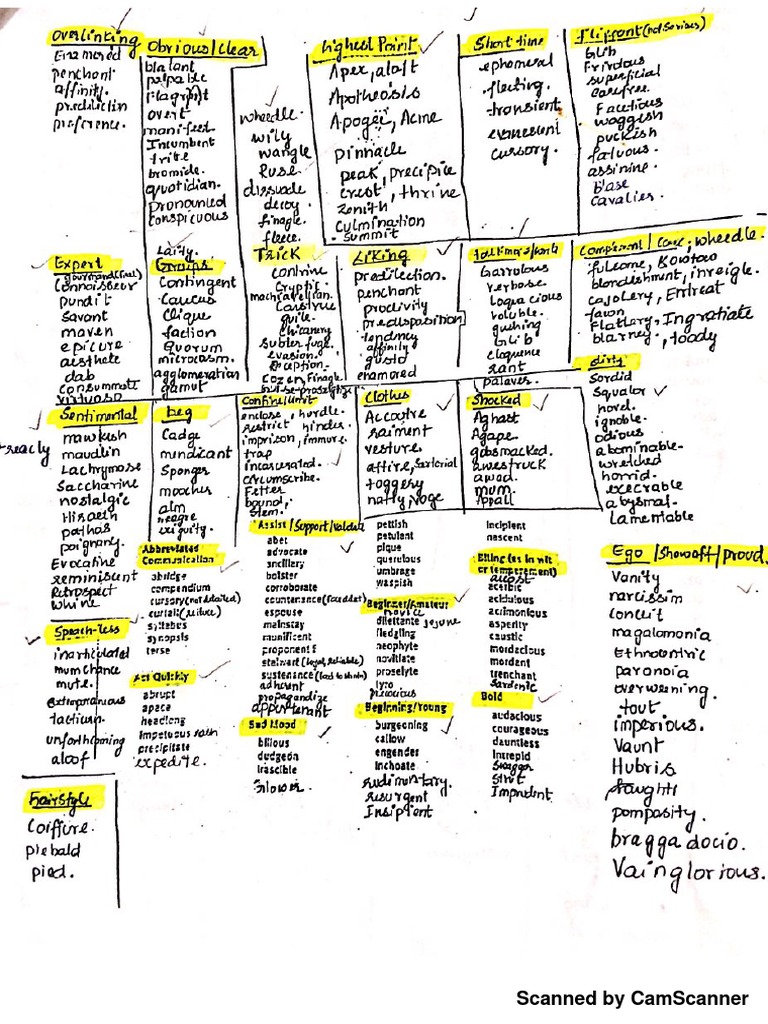 Overlinking
Enamored
penchant
affinity.
predilectin
preference.
Obvious/clear
blatant
palpable
Flagrant
overt
manifest
Incumbent
trite
bromide.
quotidian.
Pronounced
Conspicuous
wheedle.
wily
wangle
Ruse
dissuade
decoy
finagle.
fleece.
highest Point
Apex, aloft
Apotheosis
Apogee, Acme
pinnacle
peak, precipice
crest, thrine
zenith
culmination
summit
Short time
ephemeral
fleeting.
transient
evanescent
cursory.
flipfront (not serious)
Glib
Frivolous
superficial
carefree.
Facetious
waggish
puckish
fatuous.
assinine.
blase
cavalier.
Expert
gourmand (food)
Connoisseur
pundit
Savant
maven
epicure
aesthete
dab
consummate
virtuoso
Laity.
Groups
Contingent
caucus
Clique
faction
Quorum
microcosm.
agglomeration
gamut
Trick
contrive
cryptic.
machiavellian.
Construe
guile.
chicanery
subterfuge.
evasion.
Cozen, Finagle
Liking
predilection.
penchant
proclivity
predisposition
tendency
affinity
gusto
enamored
Garrulous
verbose.
loquacious
voluble.
gushing
Glib
eloquence
rant
palaver.
Complement / Coax, wheedle.
fulsome, Kowtow
blandishment, inveigle.
cajolery, Entreat
fawn
Flattery, Ingratiate
blarney, toady
dirty
Sordid
Squalor
hovel.
ignoble.
odious
abominable-
wretched
horrid.
execrable
abysmal.
lamentable
Sentimental
mawkish
treacly
maudlin
Lachrymose
Saccharine
nostalgic
Hiraeth
pathos
poignany.
Evocative
reminisent
Retrospect
whine
beg
Cadge
mendicant
Sponger
moocher
alm
meagre
exiguity.
Confine/limit
enclose, hurdle.
restrict hinder.
imprison, immure.
trap
incarcerated.
circumscribe.
Fetter
bound,
stem.
Clothes
Accoutre
raiment
vesture.
attire, Sartorial
toggery
natty, Noge
Shocked
Aghast
Agape
gobsmacked.
awestruck
awed.
mum.
Appall
Abbreviated
Communication
abridge
compendium
cursory (not detailed)
curtail (reduce)
syllabus
synopsis
terse
Assist/Support/Validate
abet
advocate
ancillary
bolster
corroborate
countenance (face dat)
espouse
mainstay
munificent
proponent s
stalwart (loyal, reliable)
sustenance
adherent
propagandize
appurtenant
pettish
petulant
pique
querulous
umbrage
waspish
Beginner/Amateur
novice
dilettante jejune
fledgling
neophyte
novitiate
proselyte
tyro
precocious
incipient
nascent
Biting (as in wit
or temperement)
acerbic
acidulous
acrimonious
asperity
caustic
mordacious
mordent
trenchant
Sardonic
Ego / Showoff / proud.
Vanity
narcissim
Conceit
magalomonia
Ethnocentric
paronoia
overweening.
tout
imperious.
Vaunt
Hubris
haughti
pompasity.
braggadocio.
Vainglorious.
Speach-less
inarticulated
mumchance
mute.
extemporaneous
taciturn.
unforthcoming
aloof
Act Quickly
abrupt
apace
headlong
impetuous rash
precipitate
expedite.
Bad Mood
bilious
dudgeon
irascible
Glower.
Beginning/Young
burgeoning
callow
engender
inchoate
rudimentary.
resurgent
Insipient
Bold
audacious
courageous
dauntless
intrepid
Swagger
Strut
Imprudent
Hairstyle
Coiffure.
piebald
pied.
Scanned by CamScanner